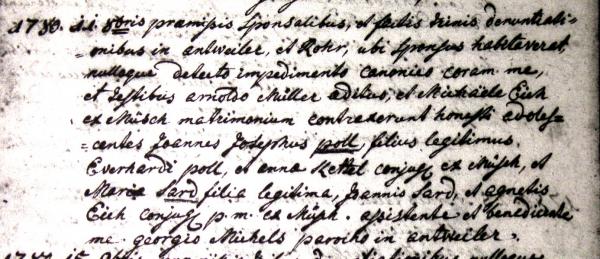 1780. 11. 8bris praemissis sponsalibus, et factis trinis denuntiati=
=onibus in antweiler, et Rohr, ubi sponsus habitaverat,
nulloque detecto impedimento canonico coram me,
et testibus arnoldo Müller aedituo, et Michaele Eich
ex Müsch matrimonium contraxerunt honesti adoles=
=centes Joannes Josephus poll, filius legitimus
Everhardi poll, et anna Kettel conjug ex Müsch, et
Maria Sard filia legitima, Joannis Sard, et agnetis
Eich conjug p.m. ex Müsch. assistente et benedicente
me georgio Michels parocho in antweiler.